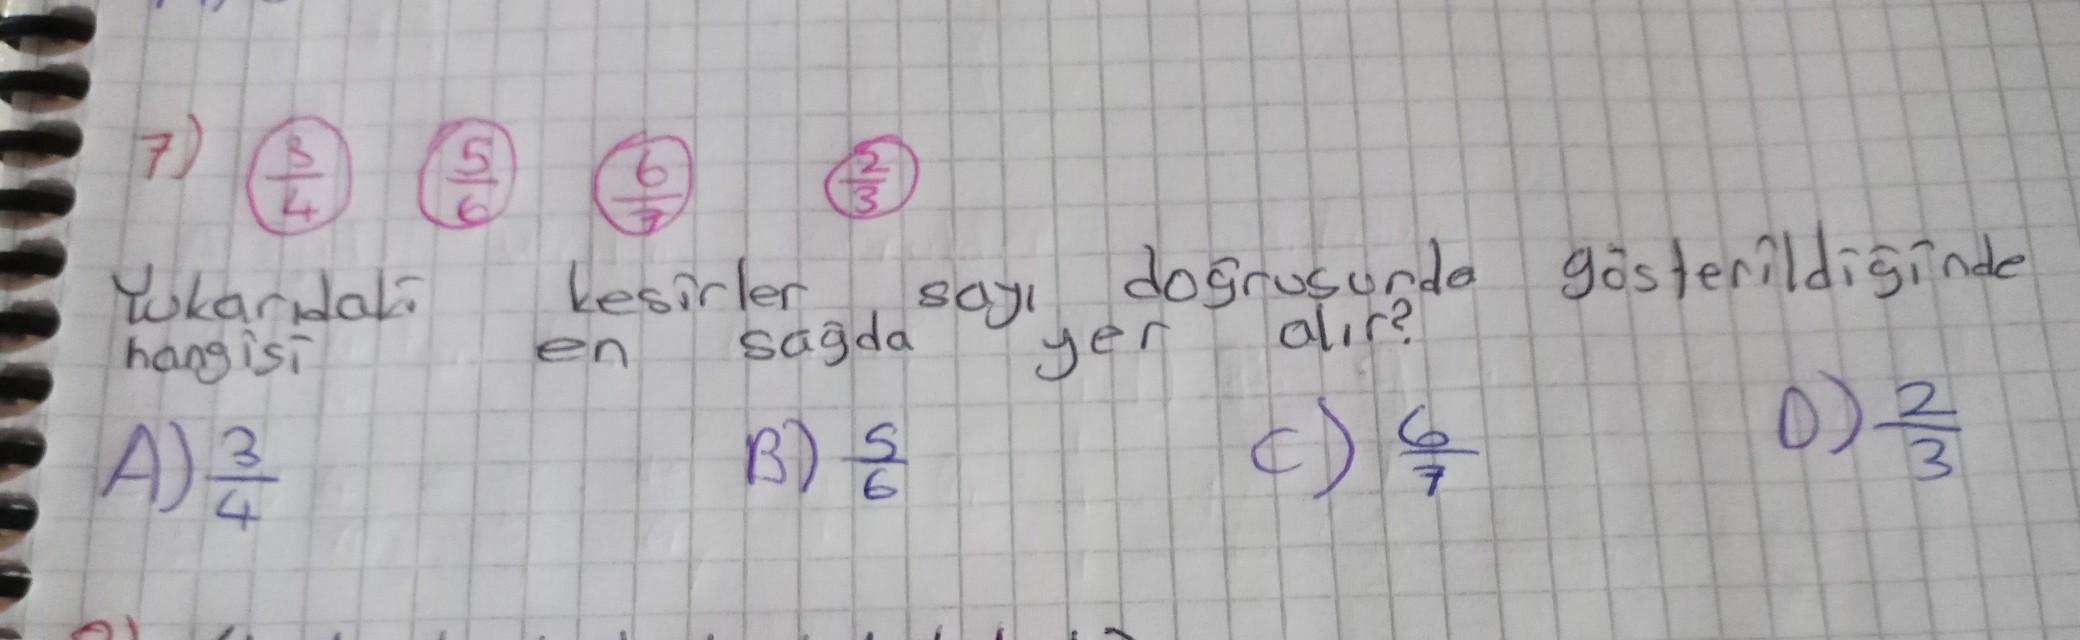 7) 3/4 5/6 6/7 2/3
Yukarıdaki kesirler sayı doğrusunda gösterildiğinde
hangisi en sağda yer alır?
A) 3/4 B) 5/6 C) 6/7 D) 2/3